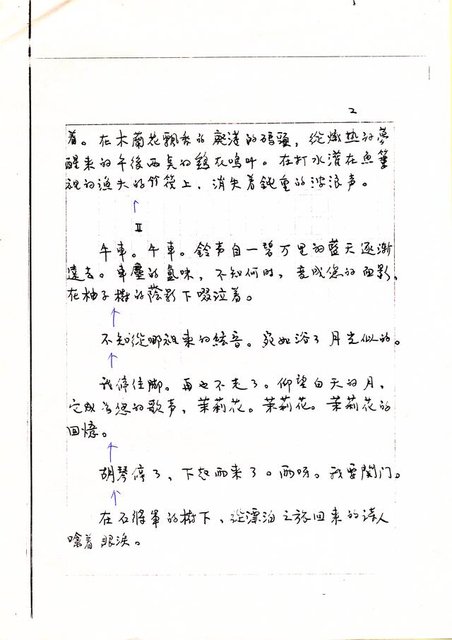 2
着。在木蘭花飄香的廢港的碼頭，從燠热的夢
醒来的午後而臭的鷄灰鳴叶。在打水灌在魚簍
裡的漁夫的竹筏上，消失着鈍重的波浪声。
II
牛車。牛車。鈴声自一碧万里的藍天逐漸
遠去。車塵的氣味，不知何時，变成您的面影，
在柚子樹的蔭影下啜泣着。
不知從哪裡来的絃音。宛如浴了月光似的。
我停住脚。再也不走了。仰望白天的月，
它成为您的歌声，茉莉花。茉莉花。茉莉花的
回憶。
胡琴停了，下起雨来了。雨呀。我要閞门。
在石将軍的樹下，從漂泊之旅回来的诗人
噙着眼淚。